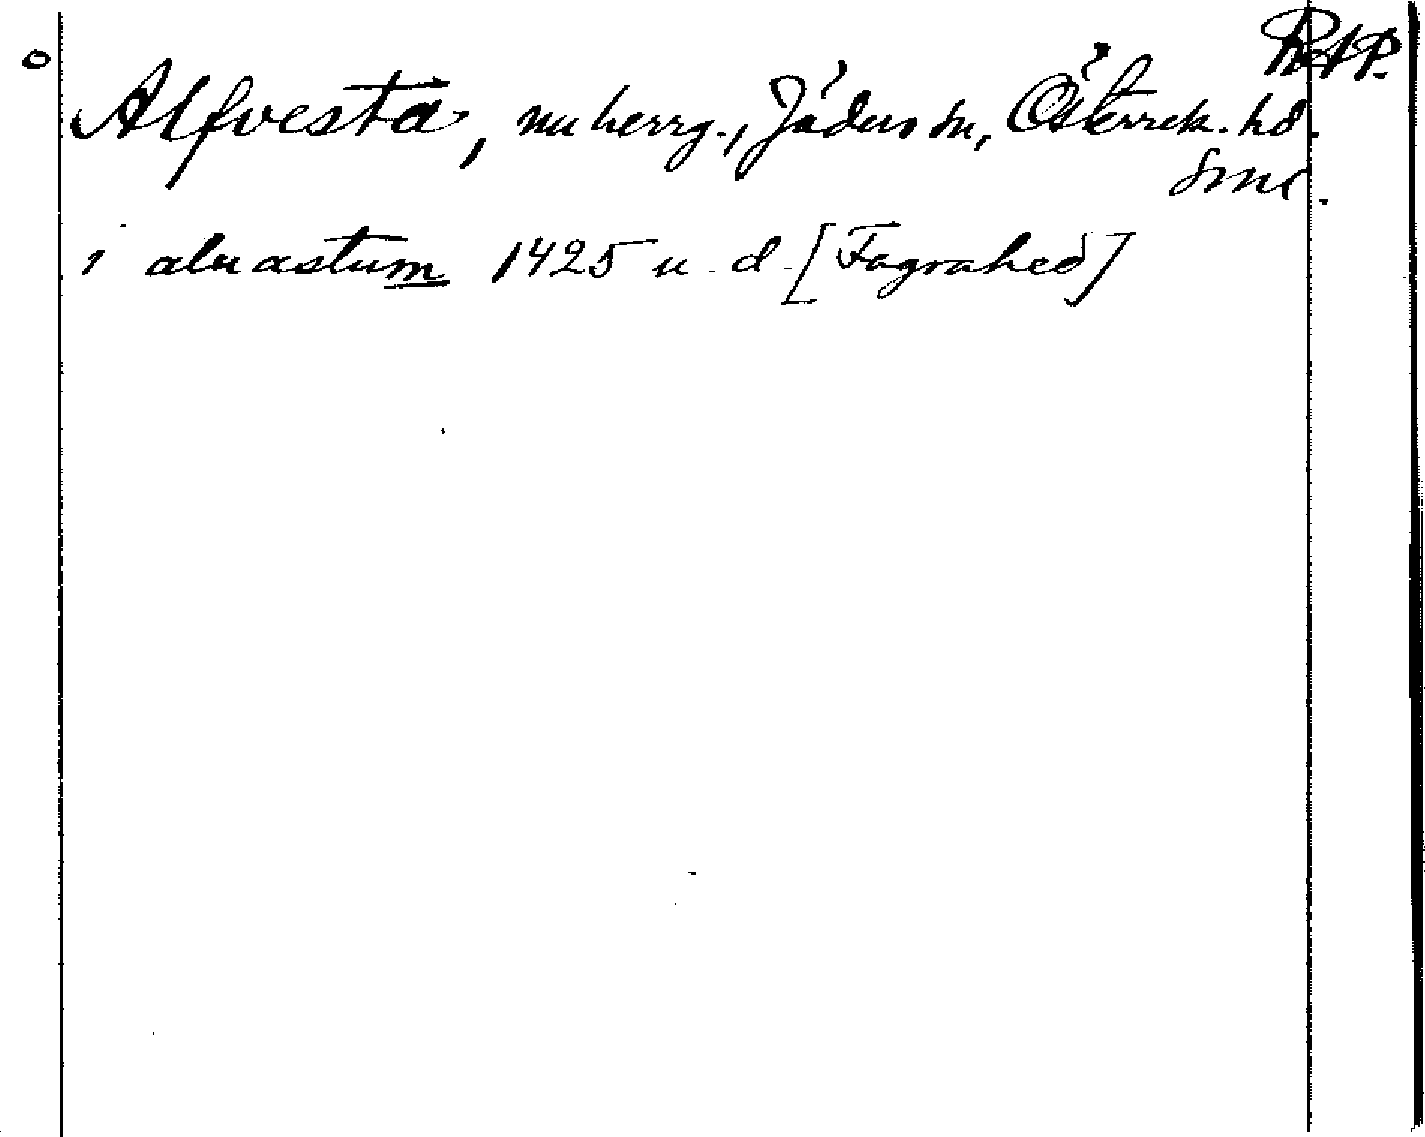 RAP.
o
Alfvesta, nu herrg., Jäders sn, Österrek. hd.
Sml.
i aluastum 1425 u. d. [Fagrahed]